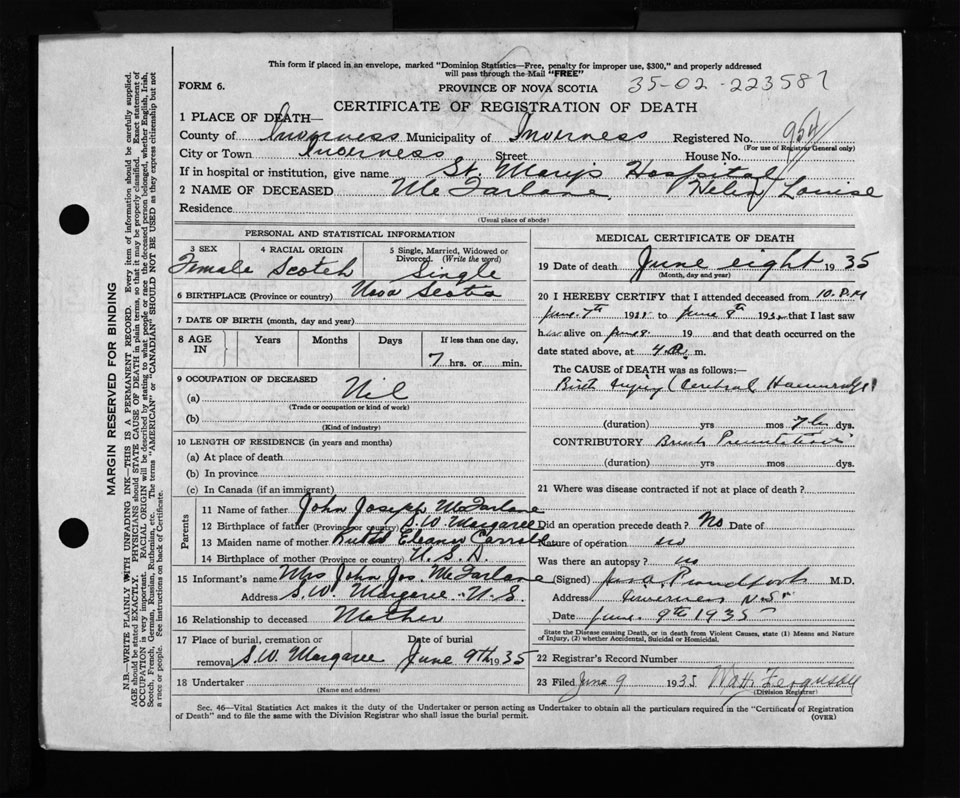 This form if placed in an envelope, marked "Dominion Statistics—Free, penalty for improper use, $300," and properly addressed
will pass through the Mail "FREE"
FORM 6.
PROVINCE OF NOVA SCOTIA
35-02-223587
CERTIFICATE OF REGISTRATION OF DEATH
1 PLACE OF DEATH—
County of Inverness Municipality of Inverness Registered No. 954
(For use of Registrar General only)
City or Town Inverness Street House No.
If in hospital or institution, give name St. Mary's Hospital
2 NAME OF DECEASED McFarlane, Helen Louise
Residence
(Usual place of abode)
PERSONAL AND STATISTICAL INFORMATION
3 SEX Female
4 RACIAL ORIGIN Scotch
5 Single, Married, Widowed or Divorced. (Write the word) Single
6 BIRTHPLACE (Province or country) Nova Scotia
7 DATE OF BIRTH (month, day and year)
8 AGE IN Years Months Days If less than one day,
7 hrs. or min.
9 OCCUPATION OF DECEASED
(a) Nil
(Trade or occupation or kind of work)
(b)
(Kind of industry)
10 LENGTH OF RESIDENCE (in years and months)
(a) At place of death
(b) In province
(c) In Canada (if an immigrant)
Parents
11 Name of father John Joseph McFarlane
12 Birthplace of father (Province or country) S.W. Margaree
13 Maiden name of mother Eleanor Carroll
14 Birthplace of mother (Province or country) U.S.A.
15 Informant's name Mrs John Jos. McFarlane
Address S.W. Margaree N.S.
16 Relationship to deceased Mother
17 Place of burial, cremation or removal S.W. Margaree Date of burial June 9th 1935
18 Undertaker
(Name and address)
MEDICAL CERTIFICATE OF DEATH
19 Date of death June eight 1935
(Month, day and year)
20 I HEREBY CERTIFY that I attended deceased from 10. P.M
June 7th 1935 to June 8th 1935 that I last saw
her alive on June 8 19 and that death occurred on
date stated above, at 4 m.
The CAUSE of DEATH was as follows:—
Birth Injury (Cerebral Haemorrhage)
(duration) yrs mos 7 hr dys.
CONTRIBUTORY Breech Presentation
(duration) yrs mos dys.
21 Where was disease contracted if not at place of death?
Did an operation precede death? No Date of
Nature of operation no
Was there an autopsy? no
(Signed) M.D.
Address Inverness N.S.
Date June 9th 1935
State the Disease causing Death, or in death from Violent Causes, state (1) Means and Nature
of Injury, (2) whether Accidental, Suicidal or Homicidal.
22 Registrar's Record Number
23 Filed June 9 1935 Ferguson
(Division Registrar)
Sec. 46—Vital Statistics Act makes it the duty of the Undertaker or person acting as Undertaker to obtain all the particulars required in the "Certificate of Registration
of Death" and to file the same with the Division Registrar who shall issue the burial permit.
(OVER)
MARGIN RESERVED FOR BINDING
N.B.—WRITE PLAINLY WITH UNFADING INK—THIS IS A PERMANENT RECORD. Every item of information should be carefully supplied.
AGE should be stated EXACTLY. PHYSICIANS should STATE CAUSE OF DEATH in plain terms, so that it may be properly classified. Exact statement of
OCCUPATION is very important. RACIAL ORIGIN will be described by stating to what people or race the deceased person belonged, whether English, Irish,
Scotch, French, German, Russian, Ruthenian, etc. The terms "AMERICAN" or "CANADIAN" SHOULD NOT BE USED as they express citizenship but not
a race or people. See instructions on back of Certificate.